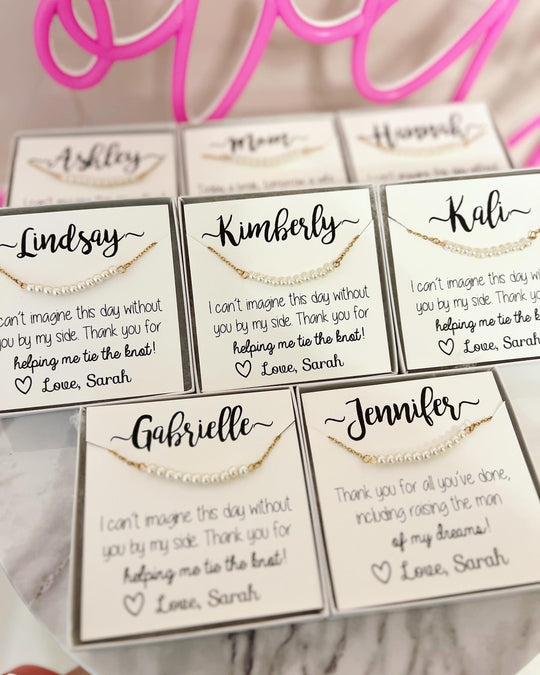 love
Ashley
Mom
Hannah
Today a bride, tomorrow a wife,
Lindsay
can't imagine this day without
you by my side. Thank you for
helping me tie the knot!
Love, Sarah
Kimberly
I can't imagine this day without
you by my side. Thank you for
helping me tie the knot!
Love, Sarah
Kali
I can't imagine this day
you by my side. Thank yo
helping me tie the knot!
Love, Sarah
Gabrielle
I can't imagine this day without
you by my side. Thank you for
helping me tie the knot!
Love, Sarah
Jennifer
Thank you for all you've done,
including raising the man
of my dreams!
Love, Sarah